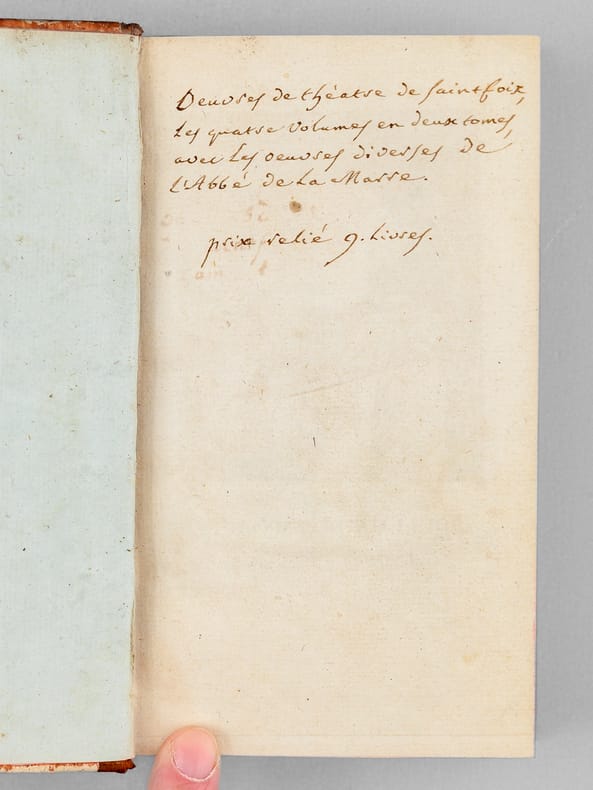 Oeuvres de théatre de Saintfoix,
Les quatre Volumes en deux tomes,
avec Les oeuvres diverses de
L'Abbé de La Marre.
prix relié 9. Livres.